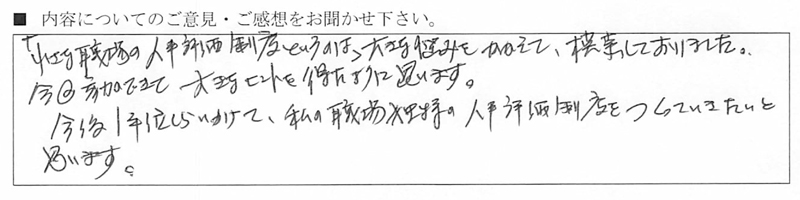 ■ 内容についてのご意見・ご感想をお聞かせ下さい。
小さな職場の人事評価制度というのは、大きな悩みをかかえて、模索しておりました。
今回参加できて大きなヒントを得たように思います。
今後1年位くらいかけて、私の職場仕様の人事評価制度をつくっていきたいと
思います。